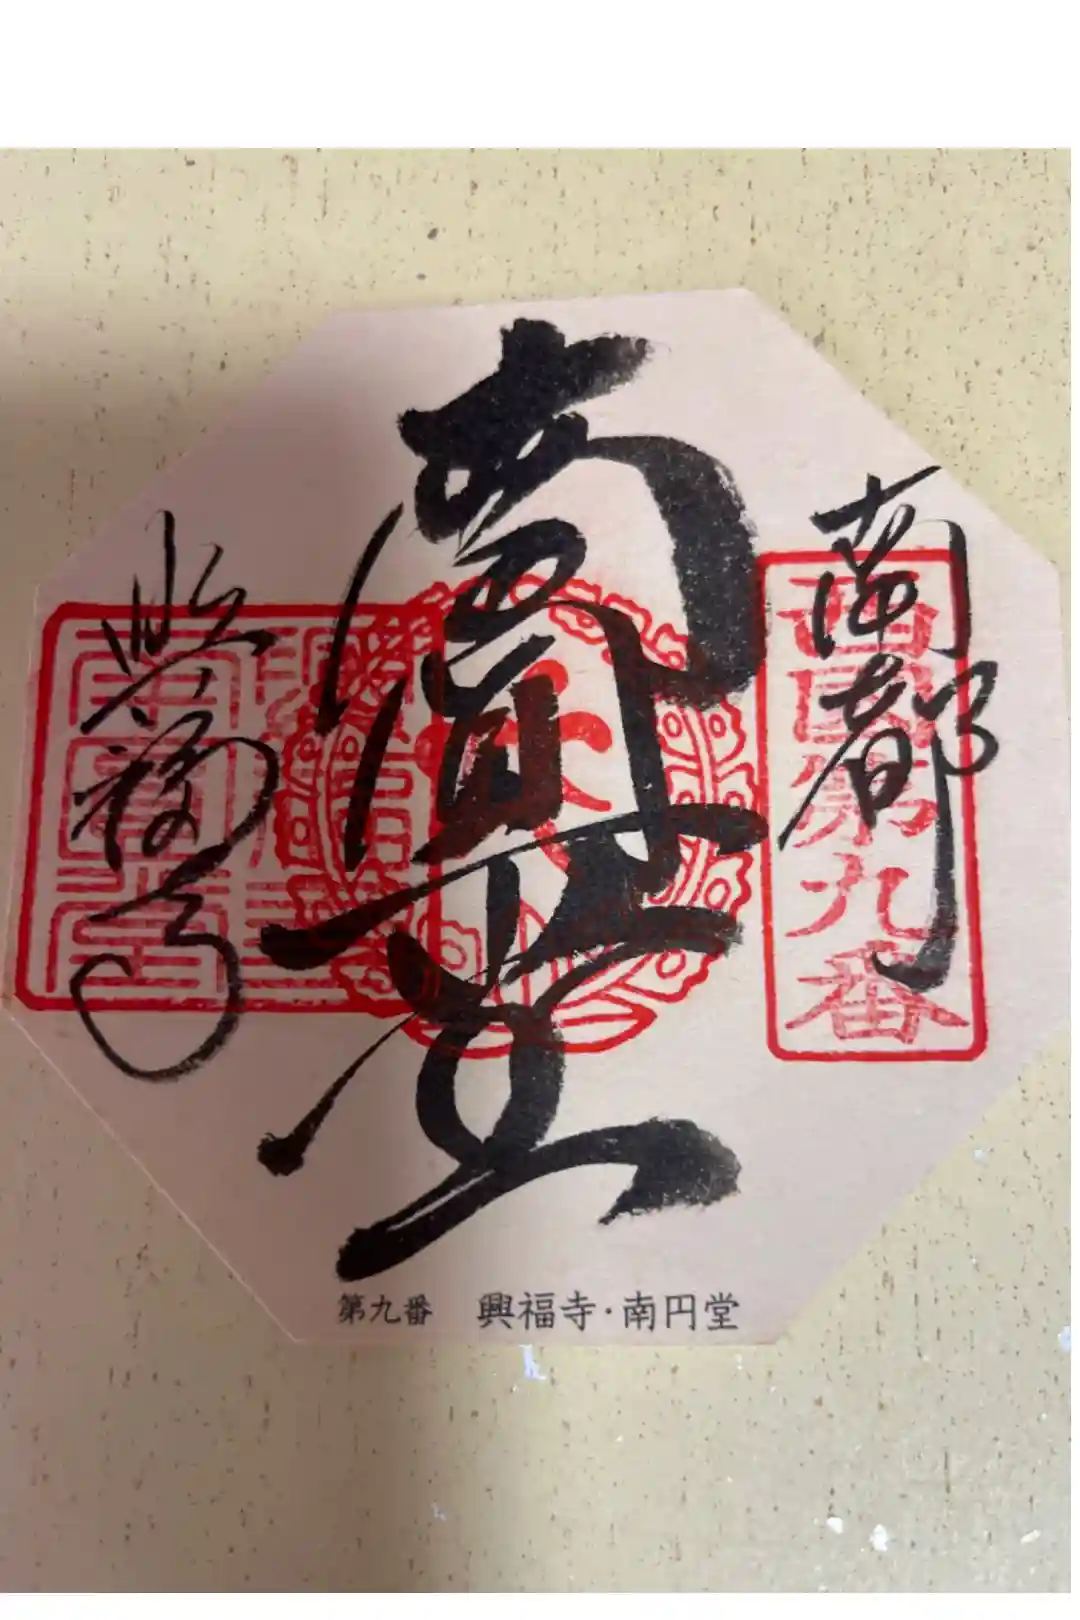 南都
西国第九番
南圓堂
興福寺
第九番 興福寺・南円堂